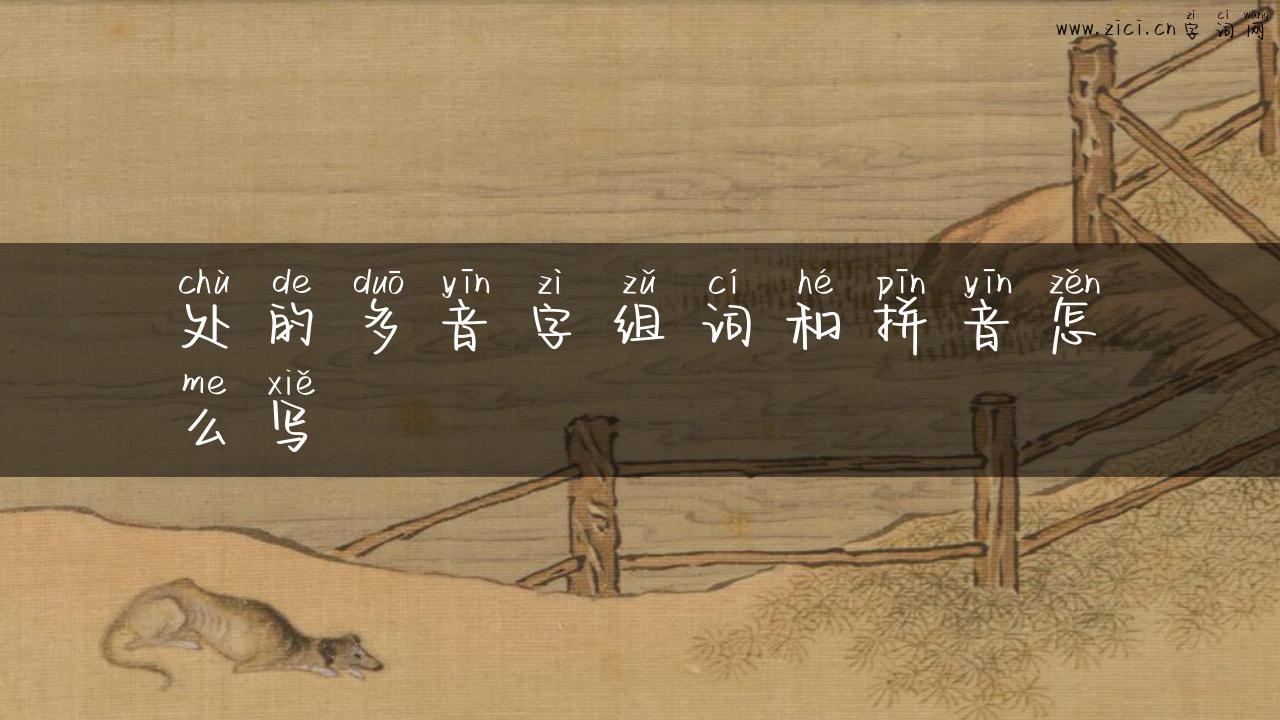 zì cí wǎng
www.zici.cn字词网
chù de duō yīn zì zǔ cí hé pīn yīn zěn
处的多音字组词和拼音怎
me xiě
么写